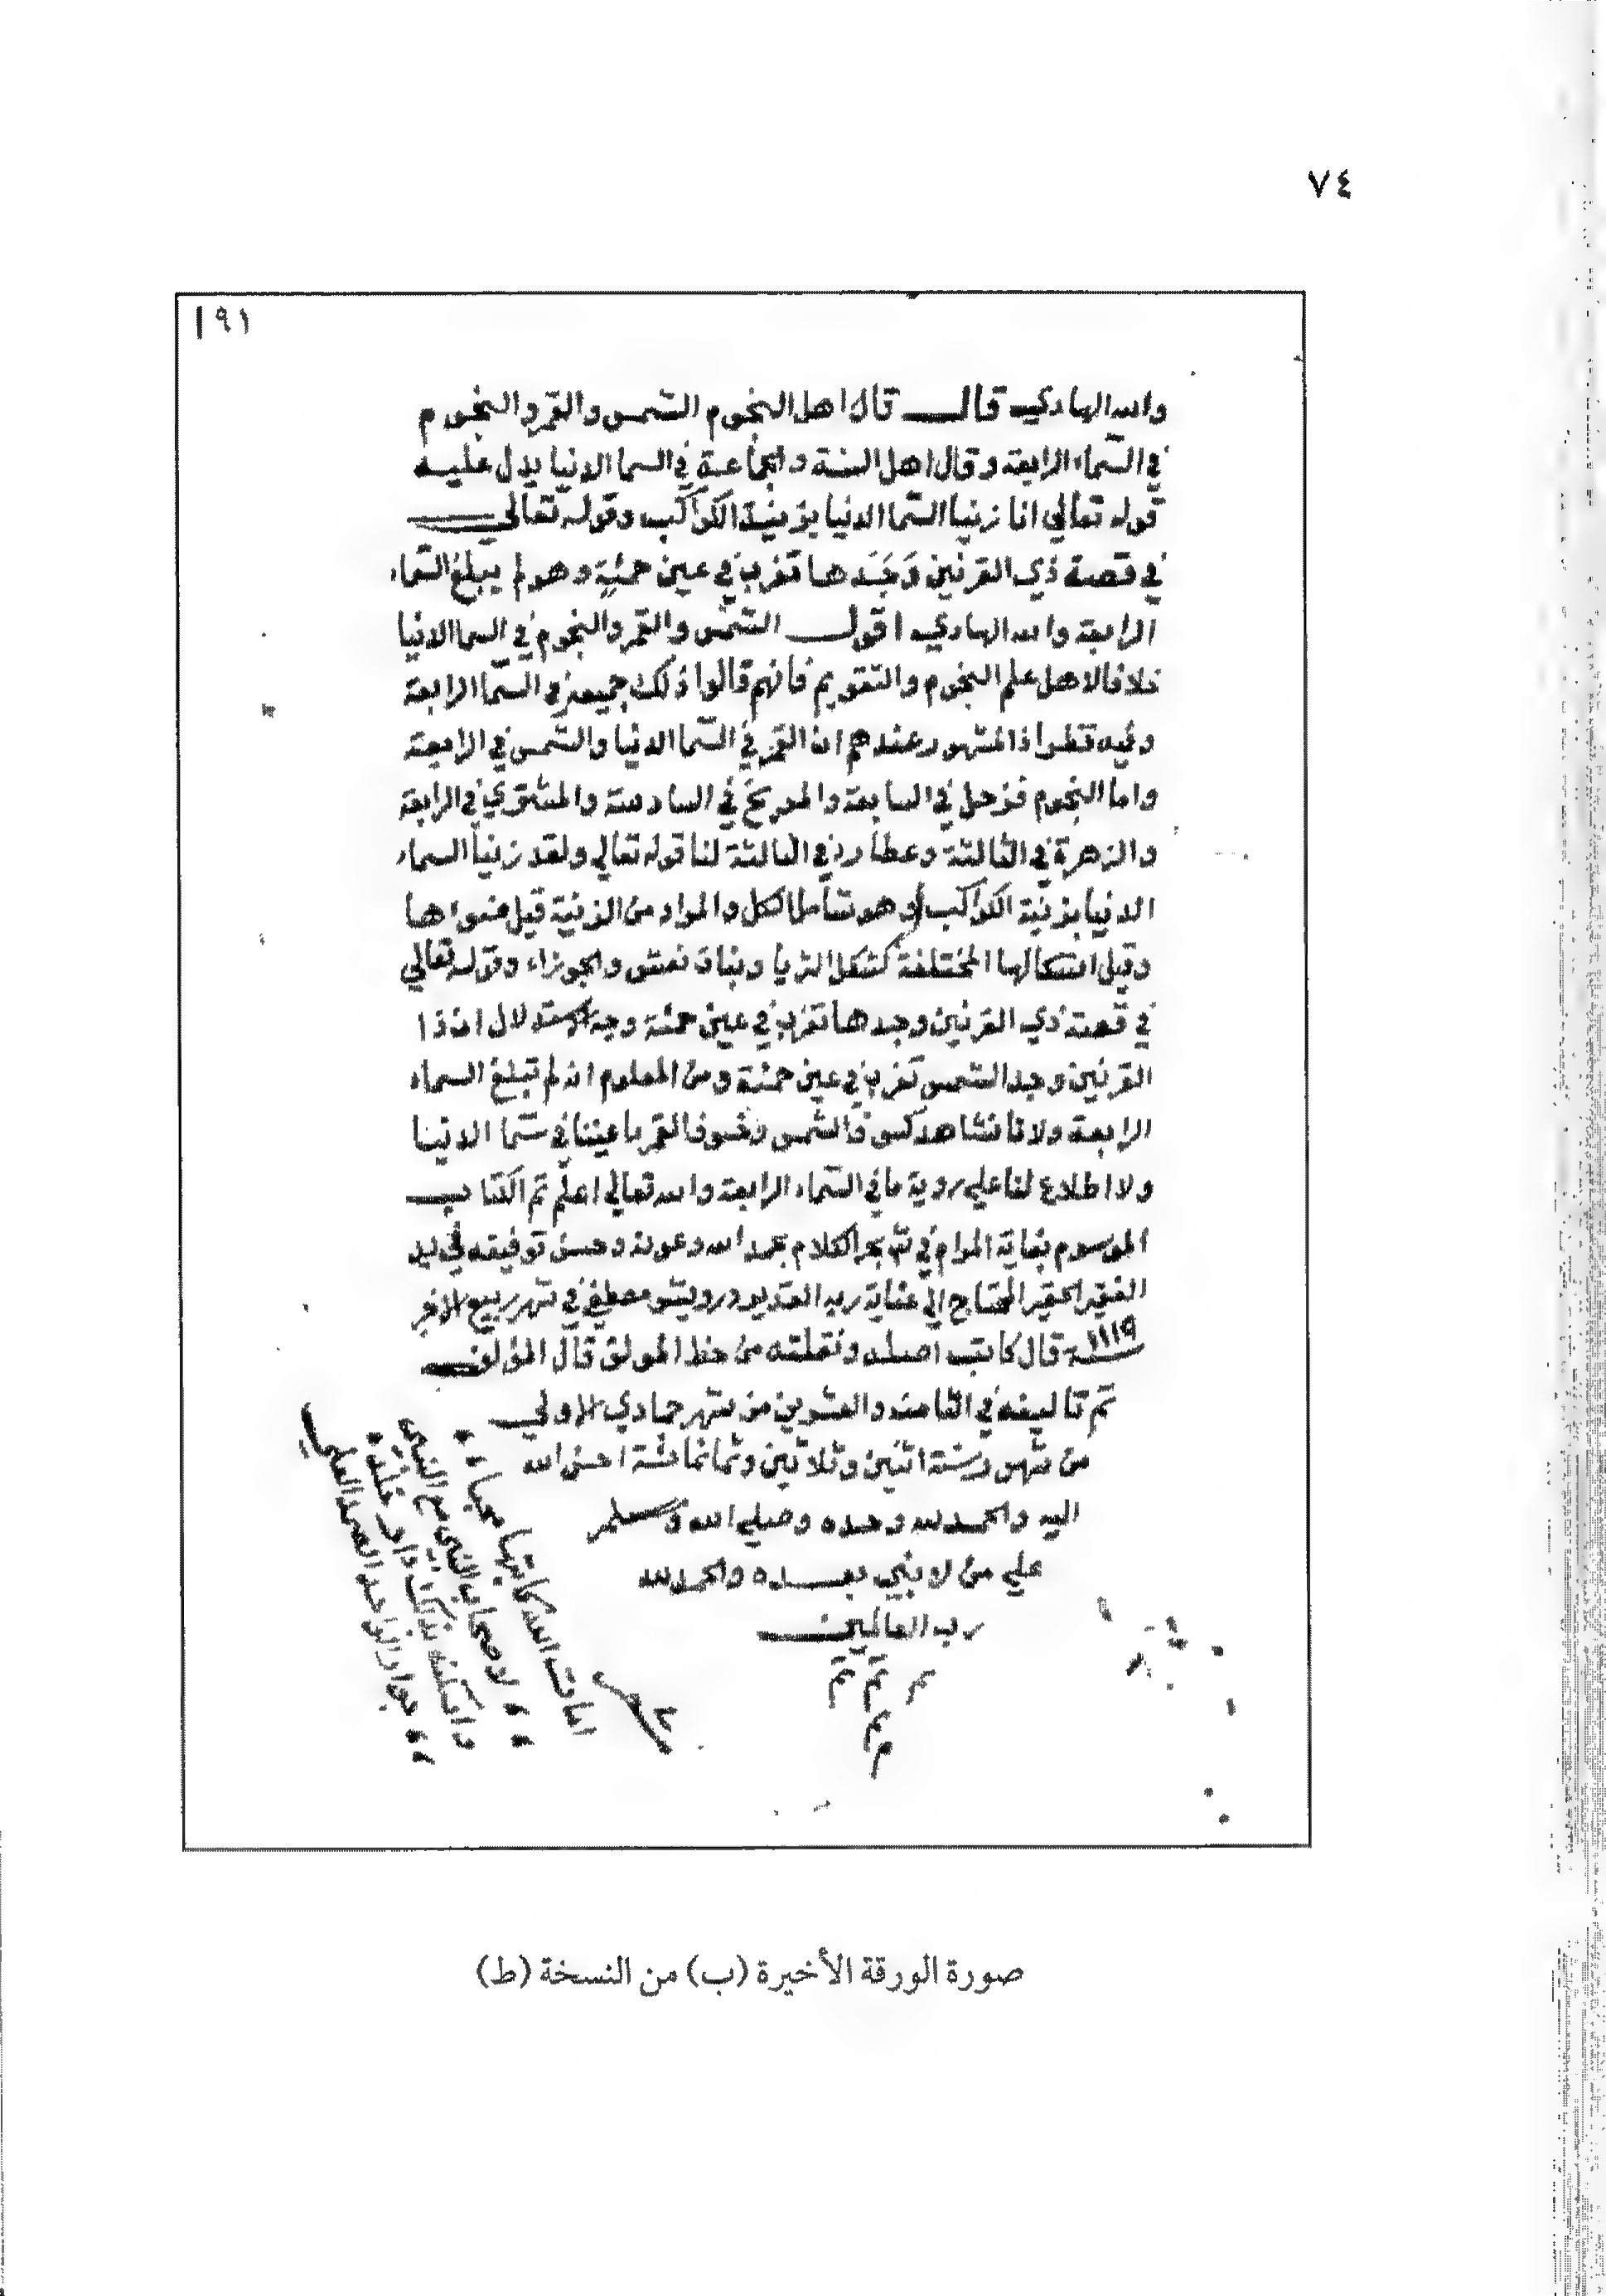 ٧٤
١٩١
والله الهادي قال قال اهل النجوم الشمس والقمر والنجوم
في السماء الرابعة وقال اهل السنة والجماعة في السما الدنيا يدل عليه
قوله تعالي انا زينا السما الدنيا بزينة الكواكب وقوله تعالي
في قصة ذي القرنين وَجَدها تغرب في عين حمئةٍ وهو لم يبلغ السماء
الرابعة والله الهادي اقول الشمس والقمر والنجوم في السما الدنيا
خلافا لاهل علم النجوم والتقويم فانهم قالوا ذلك جميعه في السما الرابعة
وفيه نظر اذ المشهور عندهم ان القمر في السما الدنيا والشمس في الرابعة
واما النجوم فزحل في السابعة والمريخ في السادسة والمشتري في الرابعة
والزهرة في الثالثة وعطارد في الثالثة لنا قوله تعالي ولقد زينا السماء
الدنيا بزينة الكواكب وهو شامل الكل والمراد من الزينة قيل ضوءها
وقيل اشكالها المختلفة كشكل الثريا وبنات نعش والجوزاء وقوله تعالي
في قصة ذي القرنين وجدها تغرب في عين حمئة وجه الاستدلال ان ذا
القرنين وجد الشمس تغرب في عين حمئة ومن المعلوم انه لم تبلغ السماء
الرابعة ولانا نشاهد كسوف الشمس وخسوف القمر باعيننا في سما الدنيا
ولا اطلاع لنا علي روية ما في السماء الرابعة والله تعالي اعلم تم الكتاب
الموسوم بغاية المرام في شرح بحر الكلام بحمد الله وعونه وحسن توفيقه في يد
الفقير الحقير المحتاج الي عناية ربه القدير درويش مصطفي في شهر ربيع الاخر
سنة ١١١٩ قال كاتب اصله ونقلته من خط المولف قال المؤلف
تم تاليفه في الثامنه والعشرين من شهر جمادي الاولي
من شهور سنة اثنين وثلاثين وثمانمائة احسن الله
اليه والحمد لله وحده وصلي الله وسلم
علي من لا نبي بعده والحمد لله
رب العالمين
تم تم تم
شعر
امات الله كاتبها
لاصحاب النبي مع النبي
واسكنه بذلك دار خلد
جوار الواحد الصمد العلي
صورة الورقة الأخيرة (ب) من النسخة (ط)